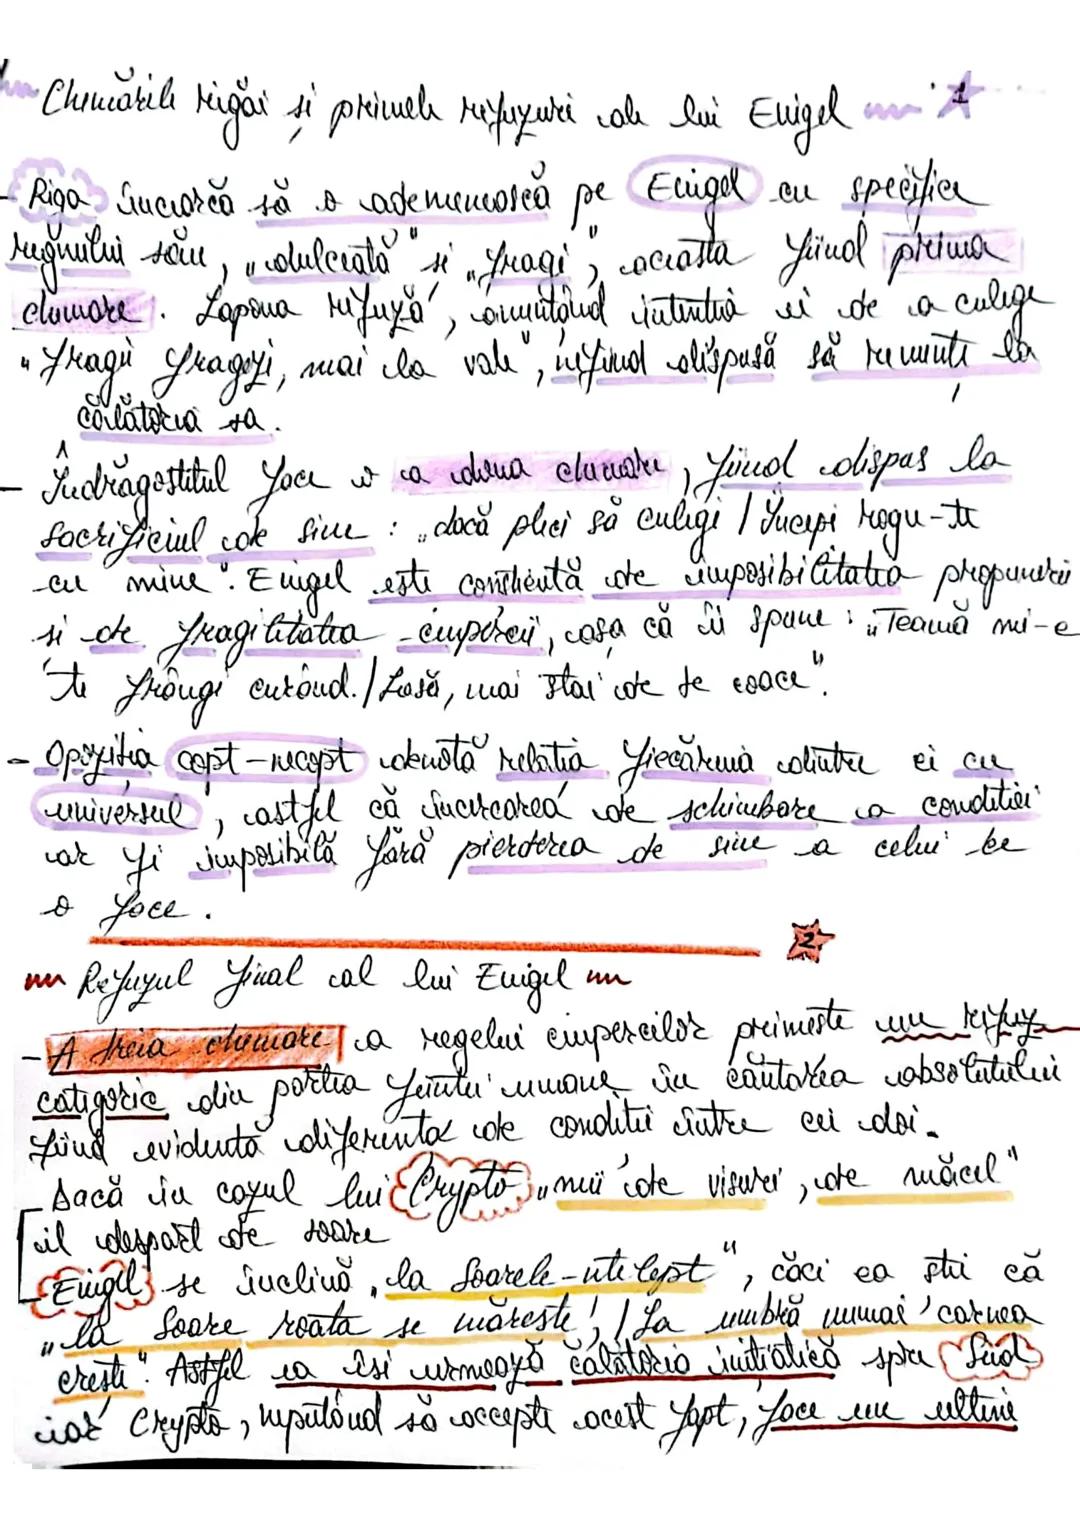 Chemările rigăi și primele refuzuri ale lui Enigel 1
- Riga încearcă să o ademenească pe Enigel cu specificu
regnului său, „dulceață" și „fragi", aceasta fiind prima
chemare. Lapona refuză, anunțând intenția ei de a culege
„fragii fragezi, mai la vale", nefiind dispusă să renunțe la
călătoria sa.
- Îndrăgostitul face o a doua chemare, fiind dispus la
sacrificiul de sine: „dacă pleci să culegi / Începi rogu-te
cu mine". Enigel este conștientă de imposibilitatea propunerii
și de fragilitatea ciupercii, așa că îi spune: „Teamă mi-e
te frângi curând. / Lasă, mai stai de te coace".
- Opoziția copt-necopt denotă relația fiecăruia dintre ei cu
universul, astfel că încercarea de schimbare a condiției
ar fi imposibilă fără pierderea de sine a celui ce
o face.
2
Refuzul final al lui Enigel
- A treia chemare a regelui ciupercilor primește un refuz
categoric din partea ființei umane în căutarea absolutului
fiind evidentă diferența de condiții între cei doi.
- Dacă în cazul lui Crypto „mii de visuri, de măcel"
îl despart de soare
- Enigel se înclină „la Soarele-nțelept", căci ea știe că
„la Soare roata se mărește; / La umbră numai carnea
crește". Astfel ea își urmează călătoria inițiatică spre Sud
iar Crypto, neputând să accepte acest fapt, face un ultim